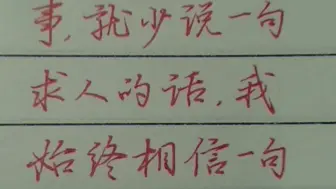 事,就少说一句
求人的话,我
始终相信一句